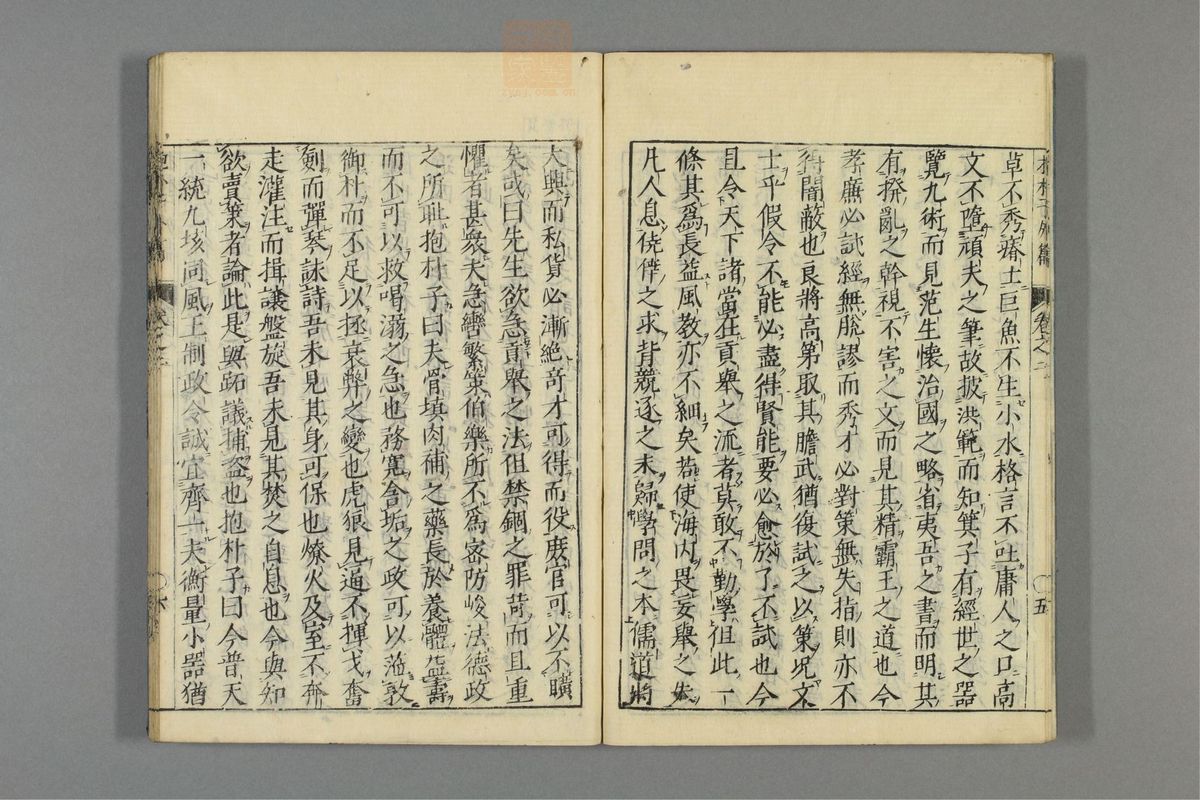 卓不秀瘠土巨魚不生小水格言不吐庸人之口高
文不墮頑夫之筆故披洪範而知箕子有經世之器
覽九術而見范生懷治國之略省夷吾之書而明其
有撥亂之幹視不害之文而見其精霸王之道也今
孝廉必試經無脫謬而秀才必對策無失指則亦不
得闇蔽也良將高第取其膽武猶復試之以策况文
士乎假令不能必盡得賢能要必愈於了不試也今
且令天下諸當在貢舉之流者莫敢不勤學但此一
條其爲長益風教亦不細矣若使海内畏妄舉之失
凡人息僥倖之求背競逐之末歸學問之本儒道將
大興而私貨必漸絕奇才可得而役庶官可以不曠
矣或曰先生欲急貢舉之法但禁錮之罪苛而且重
懼者甚衆夫急轡繁策伯樂所不爲密防峻法德政
之所耻抱朴子曰夫骨填肉補之藥長於養體益壽
而不可以救暍溺之急也務寬含垢之政可以蒞敦
御朴而不足以拯衰弊之變也虎狼見逼不揮戈奮
劍而彈琴詠詩吾未見其身可保也燎火及室不奔
走灌注而揖讓盤旋吾未見其焚之自息也今與知
欲賣策者論此是與跖議捕盗也抱朴子曰今普天
一統九垓同風王制政令誠宜齊一夫衡量小器猶
五
六